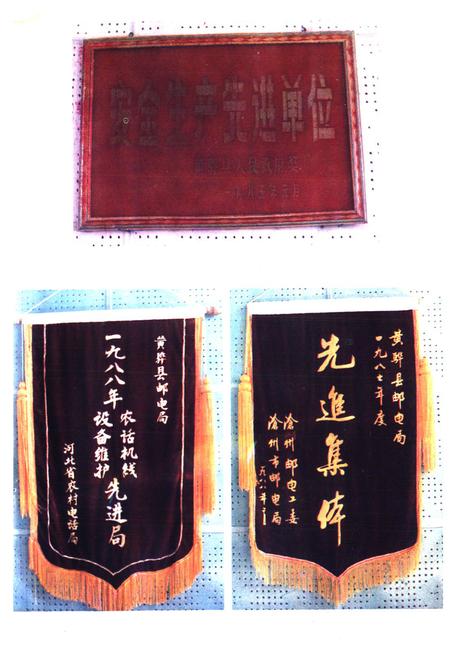 安全生产先进单位
黄骅县人民政府奖
黄骅县邮电局
一九八八年
农话机线
设备维护
先进局
河北省农村电话局
黄骅县邮电局
一九八七年度
先進集体
沧州邮电工委
沧州市邮电局